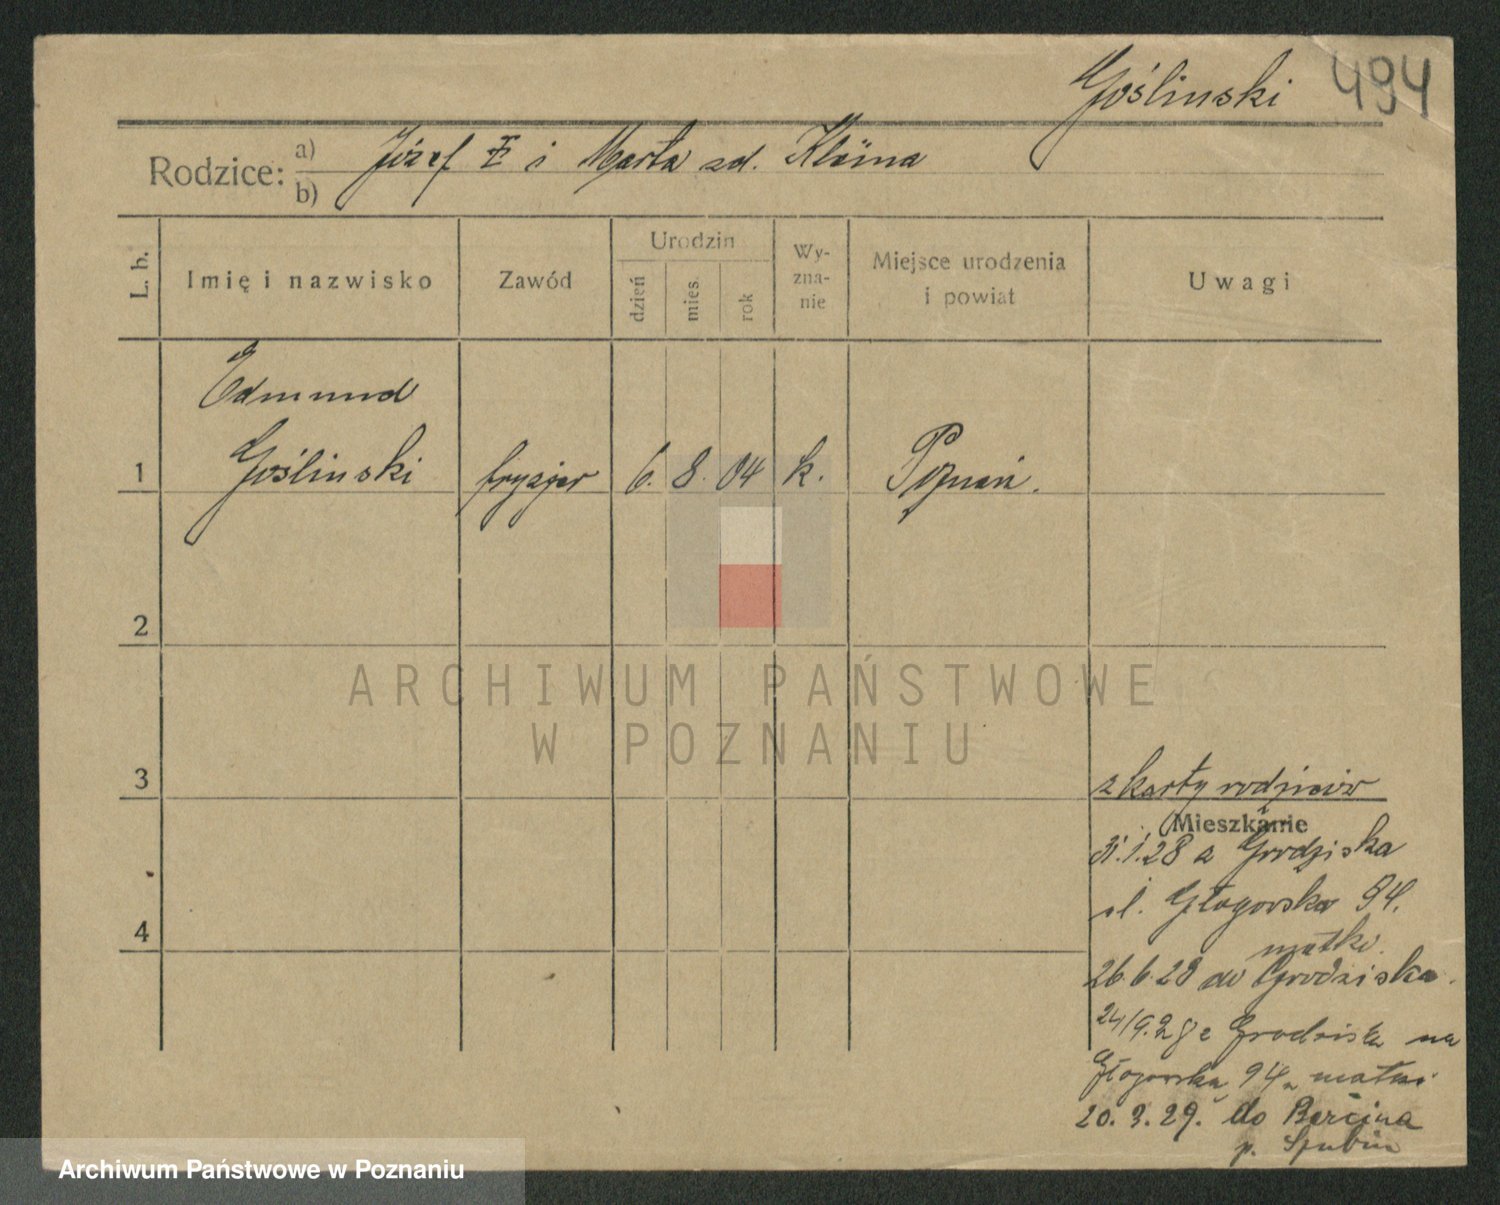 Gośliński 494
Rodzice: a) Józef ✝ i Marta zd. Kleina
b)
L. b. Imię i nazwisko Zawód Urodzin dzień mies. rok Wy-zna-nie Miejsce urodzenia i powiat Uwagi
Edmund
1 Gośliński fryzjer 6. 8. 04 k. Poznań.
2
ARCHIWUM PAŃSTWOWE
W POZNANIU
3 z karty rodziców
Mieszkanie
31.1.28 z Grodziska
ul. Głogowska 94.
4 matki.
26.6.28 do Grodziska.
24/9.28 z Grodziska na
Głogowską 94 u matki
20.3.29. do Barcina
p. Szubin
Archiwum Państwowe w Poznaniu